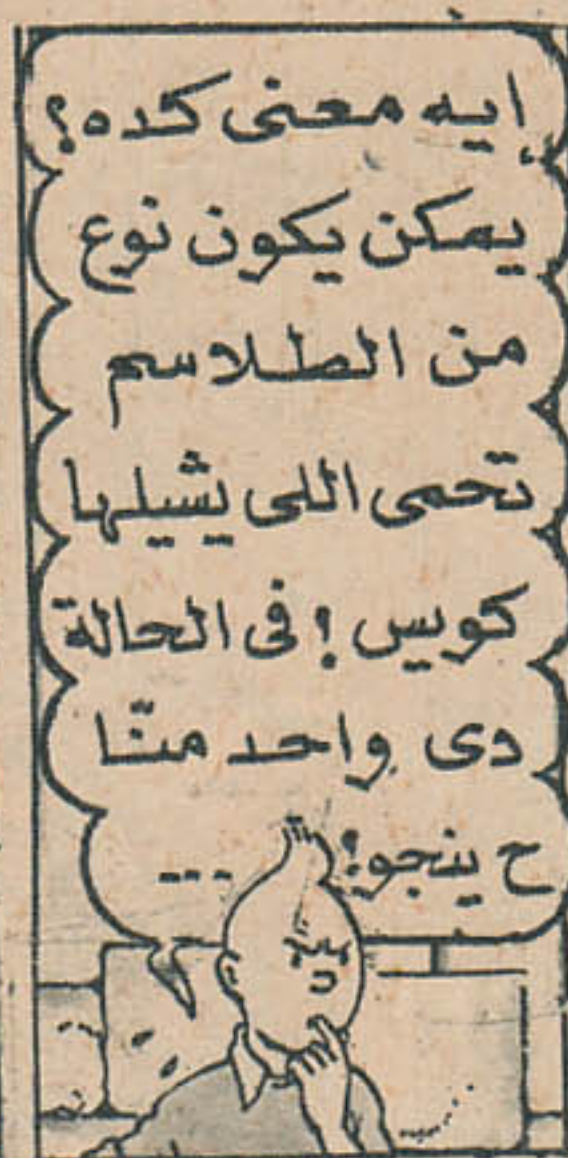 إيه معنى كده؟
يمكن يكون نوع
من الطلاسم
تحمى اللى يشيلها
كويس ! فى الحالة
دى واحد منّا
ح ينجو! ...